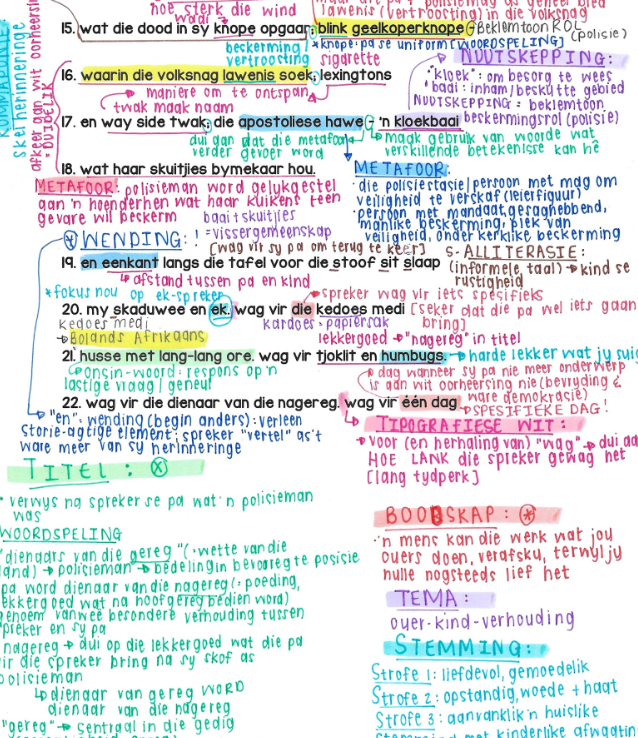 hoe sterk die wind
waai
lawenis (vertroosting) in die volksnag
15. wat die dood in sy knope opgaar; blink geelkoperknope
Beklemtoon ROL
(polisie)
beskerming/
vertroosting
*knope: pa se uniform [WOORDSPELING]
sigarette
KOMMADUKIE
skel herinneringe
afkeer aan wit oorheersi
*DUIDELIK
16. waarin die volksnag lawenis soek, lexingtons
maniere om te ontspan
twak maak naam
NUUTSKEPPING:
"kloek": om besorg te wees
baai: inham/beskutte gebied
NUUTSKEPPING: beklemtoon
beskermingsrol (polisie)
17. en way side twak; die apostoliese hawe - 'n kloekbaai
dui aan dat die metafoor
verder gevoer word
maak gebruik van woorde wat
verskillende betekenisse kan hê
18. wat haar skuitjies bymekaar hou.
METAFOOR: polisieman word gelykgestel
aan 'n hoenderhen wat haar kuikens teen
gevare wil beskerm
baai + skuitjies
= vissergemeenskap
METAFOOR:
die polisiestasie/persoon met mag om
veiligheid te verskaf (leierfiguur)
persoon met mandaat, gesaghebbend,
manlike beskerming, plek van
veiligheid, onder kerklike beskerming
WENDING:
[wag vir sy pa om terug te keer]
19. en eenkant langs die tafel voor die stoof sit slaap
afstand tussen pa en kind
S- ALLITERASIE:
(informele taal) → kind se
rustigheid
*fokus nou op ek-spreker
spreker wag vir iets spesifieks
20. my skaduwee en ek. wag vir die kedoes medi
[seker dat die pa wel iets gaan
bring]
kedoes medi
→ Bolands Afrikaans
kardoes = papiersak
lekkergoed → "nagereg" in titel
21. husse met lang-lang ore. wag vir tjoklit en humbugs.
→ harde lekker wat jy suig
onsin-woord: respons op 'n
lastige vraag/geneul
dag wanneer sy pa nie meer onderwerp
is aan wit oorheersing nie (bevryding &
ware demokrasie)
→ SPESIFIEKE DAG!
22. wag vir die dienaar van die nagereg. wag vir één dag.
"en": wending (begin anders): verleen
storie-agtige element; spreker "vertel" as't
ware meer van sy herinneringe
TIPOGRAFIESE WIT:
voor (en herhaling van) "wag" → dui aa
HOE LANK die spreker gewag het
[lang tydperk]
TITEL:
* verwys na spreker se pa wat 'n polisieman
was
WOORDSPELING
"dienaars van die gereg" (= wette van die
land) → polisieman → bedeling in bevoregte posisie
pa word dienaar van die nagereg (= poeding,
lekkergoed wat na hoofgereg bedien word)
genoem vanweë besondere verhouding tussen
spreker en sy pa
nagereg → dui op die lekkergoed wat die pa
vir die spreker bring na sy skof as
polisieman
dienaar van gereg WORD
dienaar van die nagereg
"gereg" → sentraal in die gedig
BOODSKAP:
'n mens kan die werk wat jou
ouers doen, verafsku, terwyl jy
hulle nogsteeds lief het
TEMA:
ouer-kind-verhouding
STEMMING:
Strofe 1: liefdevol, gemoedelik
Strofe 2: opstandig, woede + haat
Strofe 3: aanvanklik 'n huislike
stemming met kinderlike afwagtin